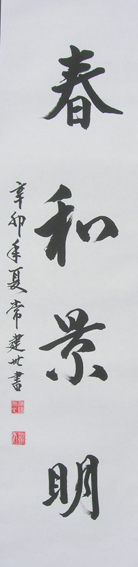 春和景明
辛卯年夏常建世書